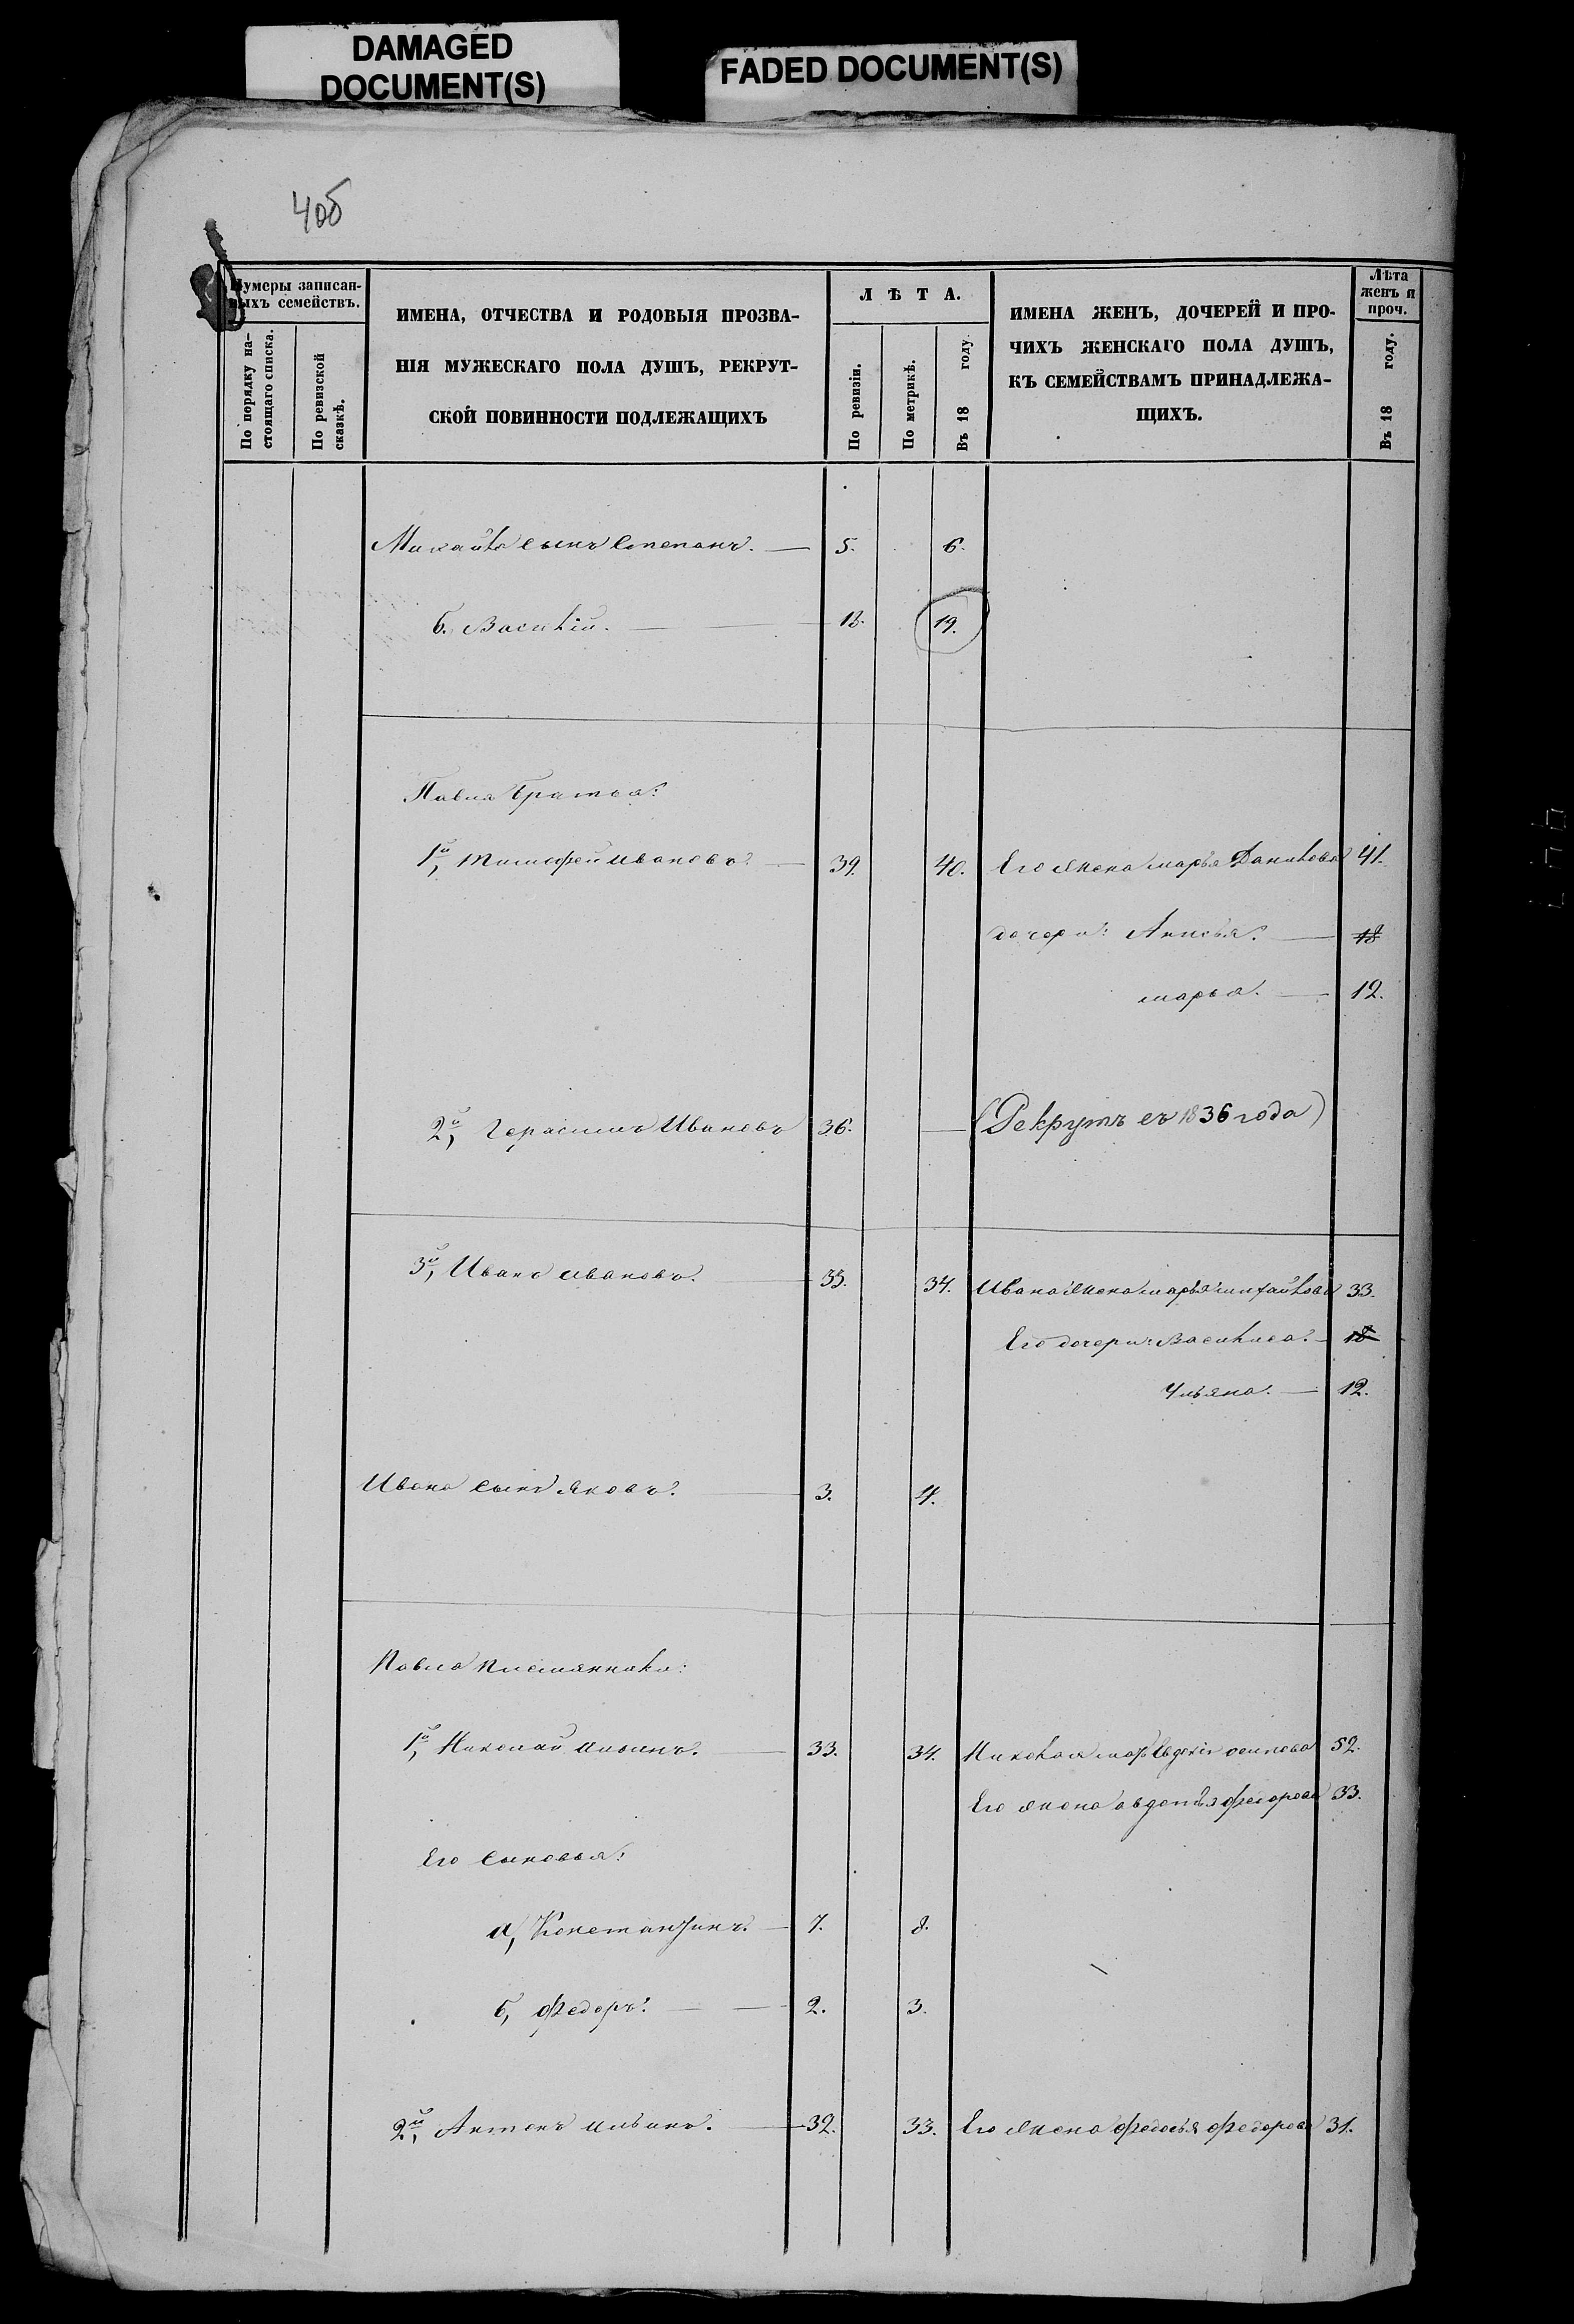 DAMAGED
DOCUMENT(S)
FADED DOCUMENT(S)
40б
Нумеры записан-
ныхъ семействъ.
По порядку на-
стоящаго списка.
По ревизской
сказкѣ.
ИМЕНА, ОТЧЕСТВА И РОДОВЫЯ ПРОЗВА-
НІЯ МУЖЕСКАГО ПОЛА ДУШЪ, РЕКРУТ-
СКОЙ ПОВИННОСТИ ПОДЛЕЖАЩИХЪ
ЛѢТА.
По ревизіи.
По метрикѣ.
Въ 18 году.
ИМЕНА ЖЕНЪ, ДОЧЕРЕЙ И ПРО-
ЧИХЪ ЖЕНСКАГО ПОЛА ДУШЪ,
КЪ СЕМЕЙСТВАМЪ ПРИНАДЛЕЖА-
ЩИХЪ.
Лѣта
женъ и
проч.
Въ 18 году.
Михайла сынъ Степанъ. 5. 6.
б. Василій. 18. 19.
Павла братья:
1й, Тимофей Ивановъ. 39. 40. Его жена марья Данилова 41.
дочери: Анисья. 18
марья. 12.
2й, Герасимъ Ивановъ 36. (Рекрутъ съ 1836 года)
3й, Иванъ Ивановъ. 33. 34. Ивана жена марья михайлова 33.
Его дочери: Василиса. 18
Ульяна. 12.
Ивана сынъ Яковъ. 3. 4.
Павла племянники:
1й, Николай Ильинъ. 33. 34. Николая мать Евдокія осипова 52.
Его жена авдотья федорова 33.
Его сыновья:
а, Константинъ. 7. 8.
б, Федоръ. 2. 3.
2й, Антонъ Ильинъ. 32. 33. Его жена Федосья Федорова 31.